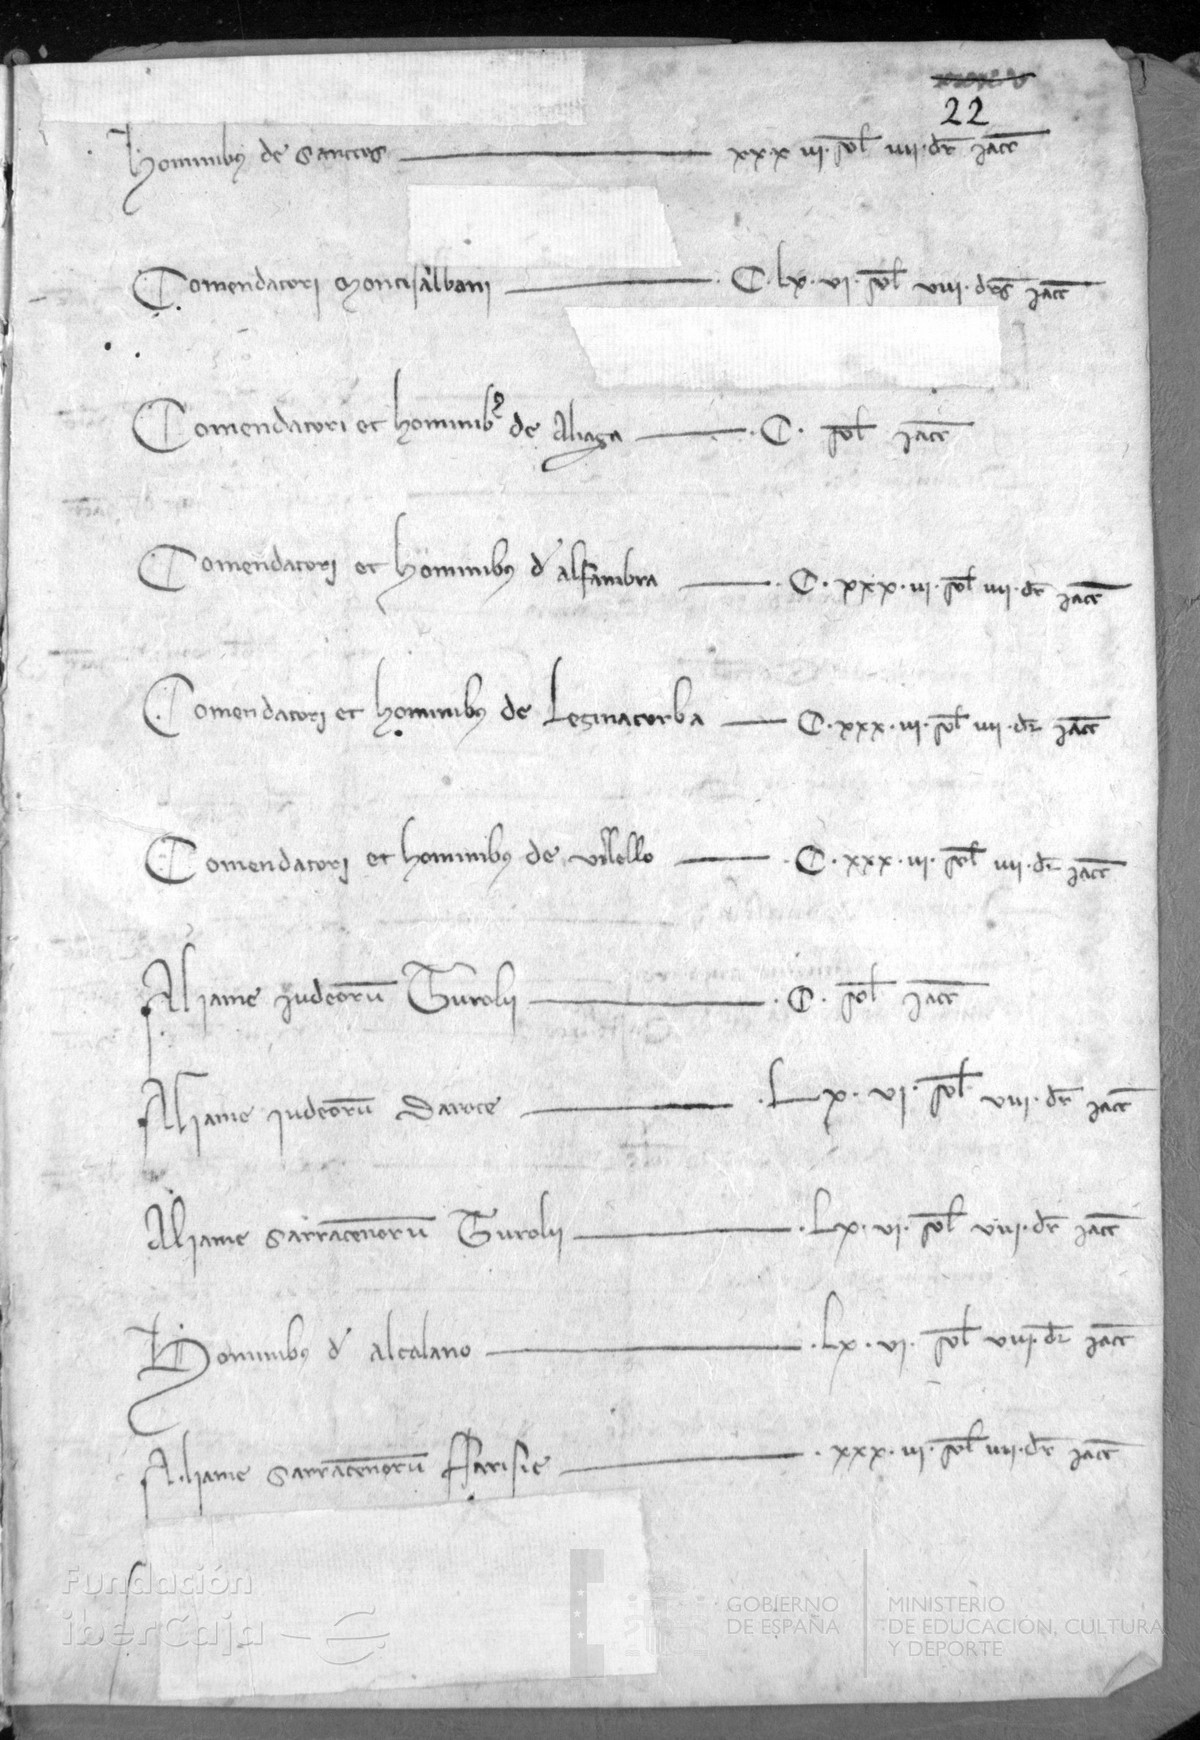 22
Hominibus de Santos xxx iii · sol iiii · dr iacc
Comendatori Montisalbani · C · Lx · vi · sol viii · drs iacc
Comendatori et hominibus de Aliaga · C · sol iacc
Comendatori et hominibus d' alfambra · C · xxx · iii · sol iiii · dr iacc
Comendatori et hominibus de Leginacorba C · xxx · iii · sol iiii · dr iacc
Comendatori et hominibus de vilello · C · xxx · iii · sol iiii · dr iacc
Aliame iudeorū Turolii · C · sol iacc
Aliame iudeorū Daroce · Lx · vi · sol viii · dr iacc
Aliame sarracenorū Turolii · Lx · vi · sol viii · dr iacc
Hominibus d' alcalano · Lx · vi · sol viii · dr iacc
Aliame sarracenorū ffarisie · xxx · iii · sol iiii · dr iacc
Fundación
iberCaja
GOBIERNO
DE ESPAÑA
MINISTERIO
DE EDUCACIÓN, CULTURA
Y DEPORTE